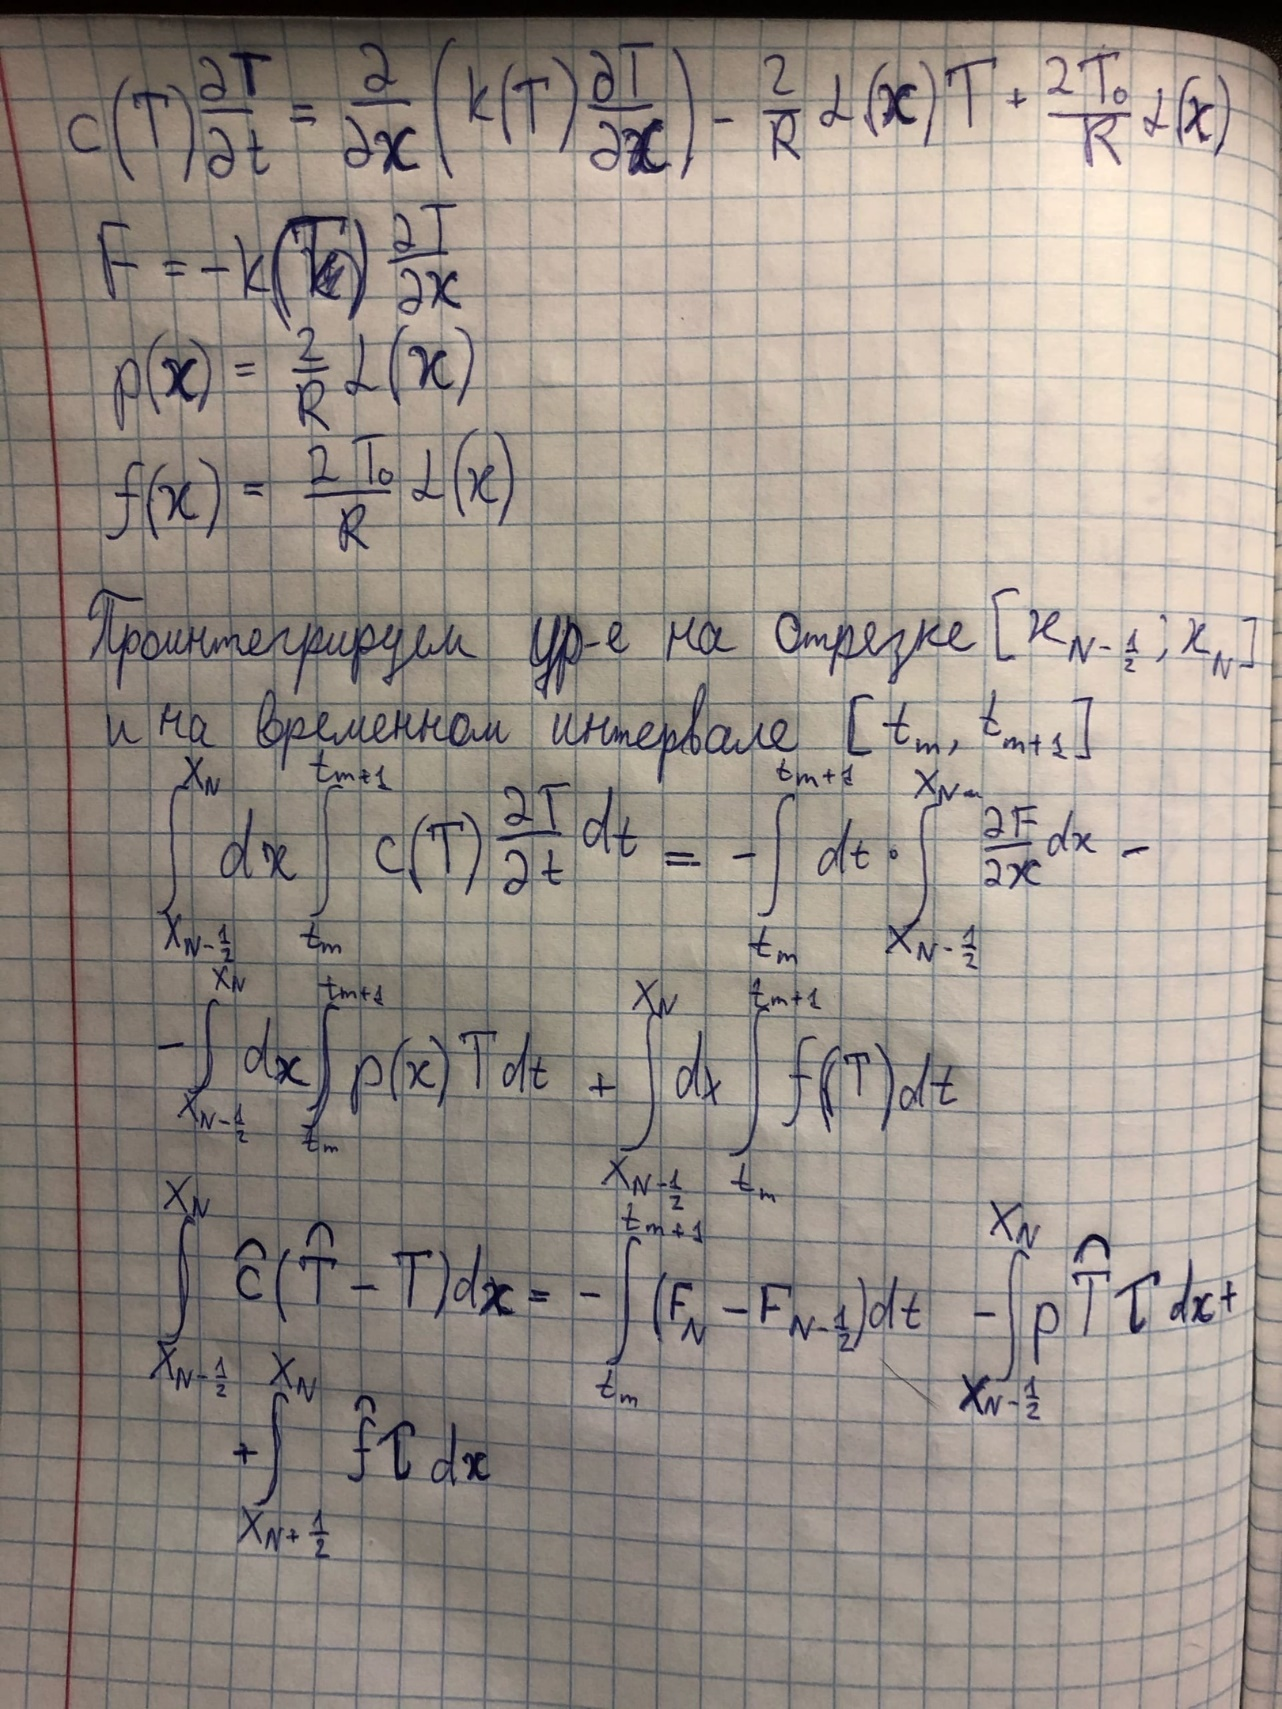 c(T) ∂T/∂t = ∂/∂x (k(T) ∂T/∂x) - 2/R α(x) T + 2T₀/R α(x)
F = -k(T) ∂T/∂x
p(x) = 2/R α(x)
f(x) = 2T₀/R α(x)
Проинтегрируем ур-е на отрезке [x_{N-1/2}; x_N]
и на временном интервале [t_m, t_{m+1}]
∫_{x_{N-1/2}}^{x_N} dx ∫_{t_m}^{t_{m+1}} c(T) ∂T/∂t dt = - ∫_{t_m}^{t_{m+1}} dt · ∫_{x_{N-1/2}}^{x_N} ∂F/∂x dx -
- ∫_{x_{N-1/2}}^{x_N} dx ∫_{t_m}^{t_{m+1}} p(x) T dt + ∫_{x_{N-1/2}}^{x_N} dx ∫_{t_m}^{t_{m+1}} f(T) dt
∫_{x_{N-1/2}}^{x_N} ĉ(T̂ - T) dx = - ∫_{t_m}^{t_{m+1}} (F_N - F_{N-1/2}) dt - ∫_{x_{N-1/2}}^{x_N} p T̂ τ dx +
+ ∫_{x_{N+1/2}}^{x_N} f̂ τ dx